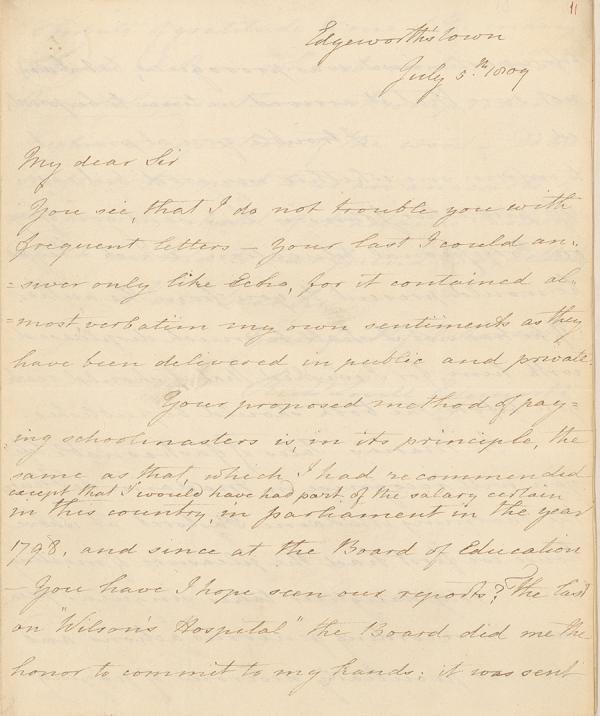 11
Edgeworthstown
July 5th 1809
My dear Sir
You see, that I do not trouble you with
frequent letters — Your last I could an=
=swer only like Echo, for it contained al=
=most verbatim my own sentiments as they
have been delivered in public and private.
Your proposed method of pay=
=ing schoolmasters is, in its principle, the
same as that, which I had recommended
except that I would have had part of the salary certain
in this country, in parliament in the year
1798, and since at the Board of Education
— You have I hope seen our reports? The last
on "Wilson's Hospital" the Board did me the
honor to commit to my hands: it was sent